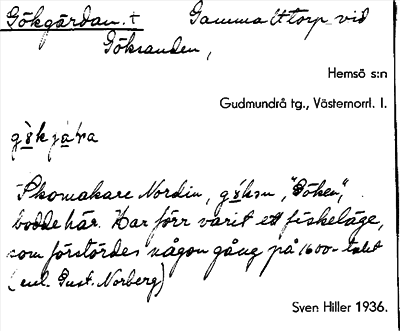 Gökgärdan. † Gammalt torp vid
Göksanden,
Hemsö s:n
Gudmundrå tg., Västernorrl. l.
Skomakare Nordin, "Göken",
bodde här. Har förr varit ett fiskeläge,
som förstördes någon gång på 1600-talet
(enl. Gust. Norberg)
Sven Hiller 1936.